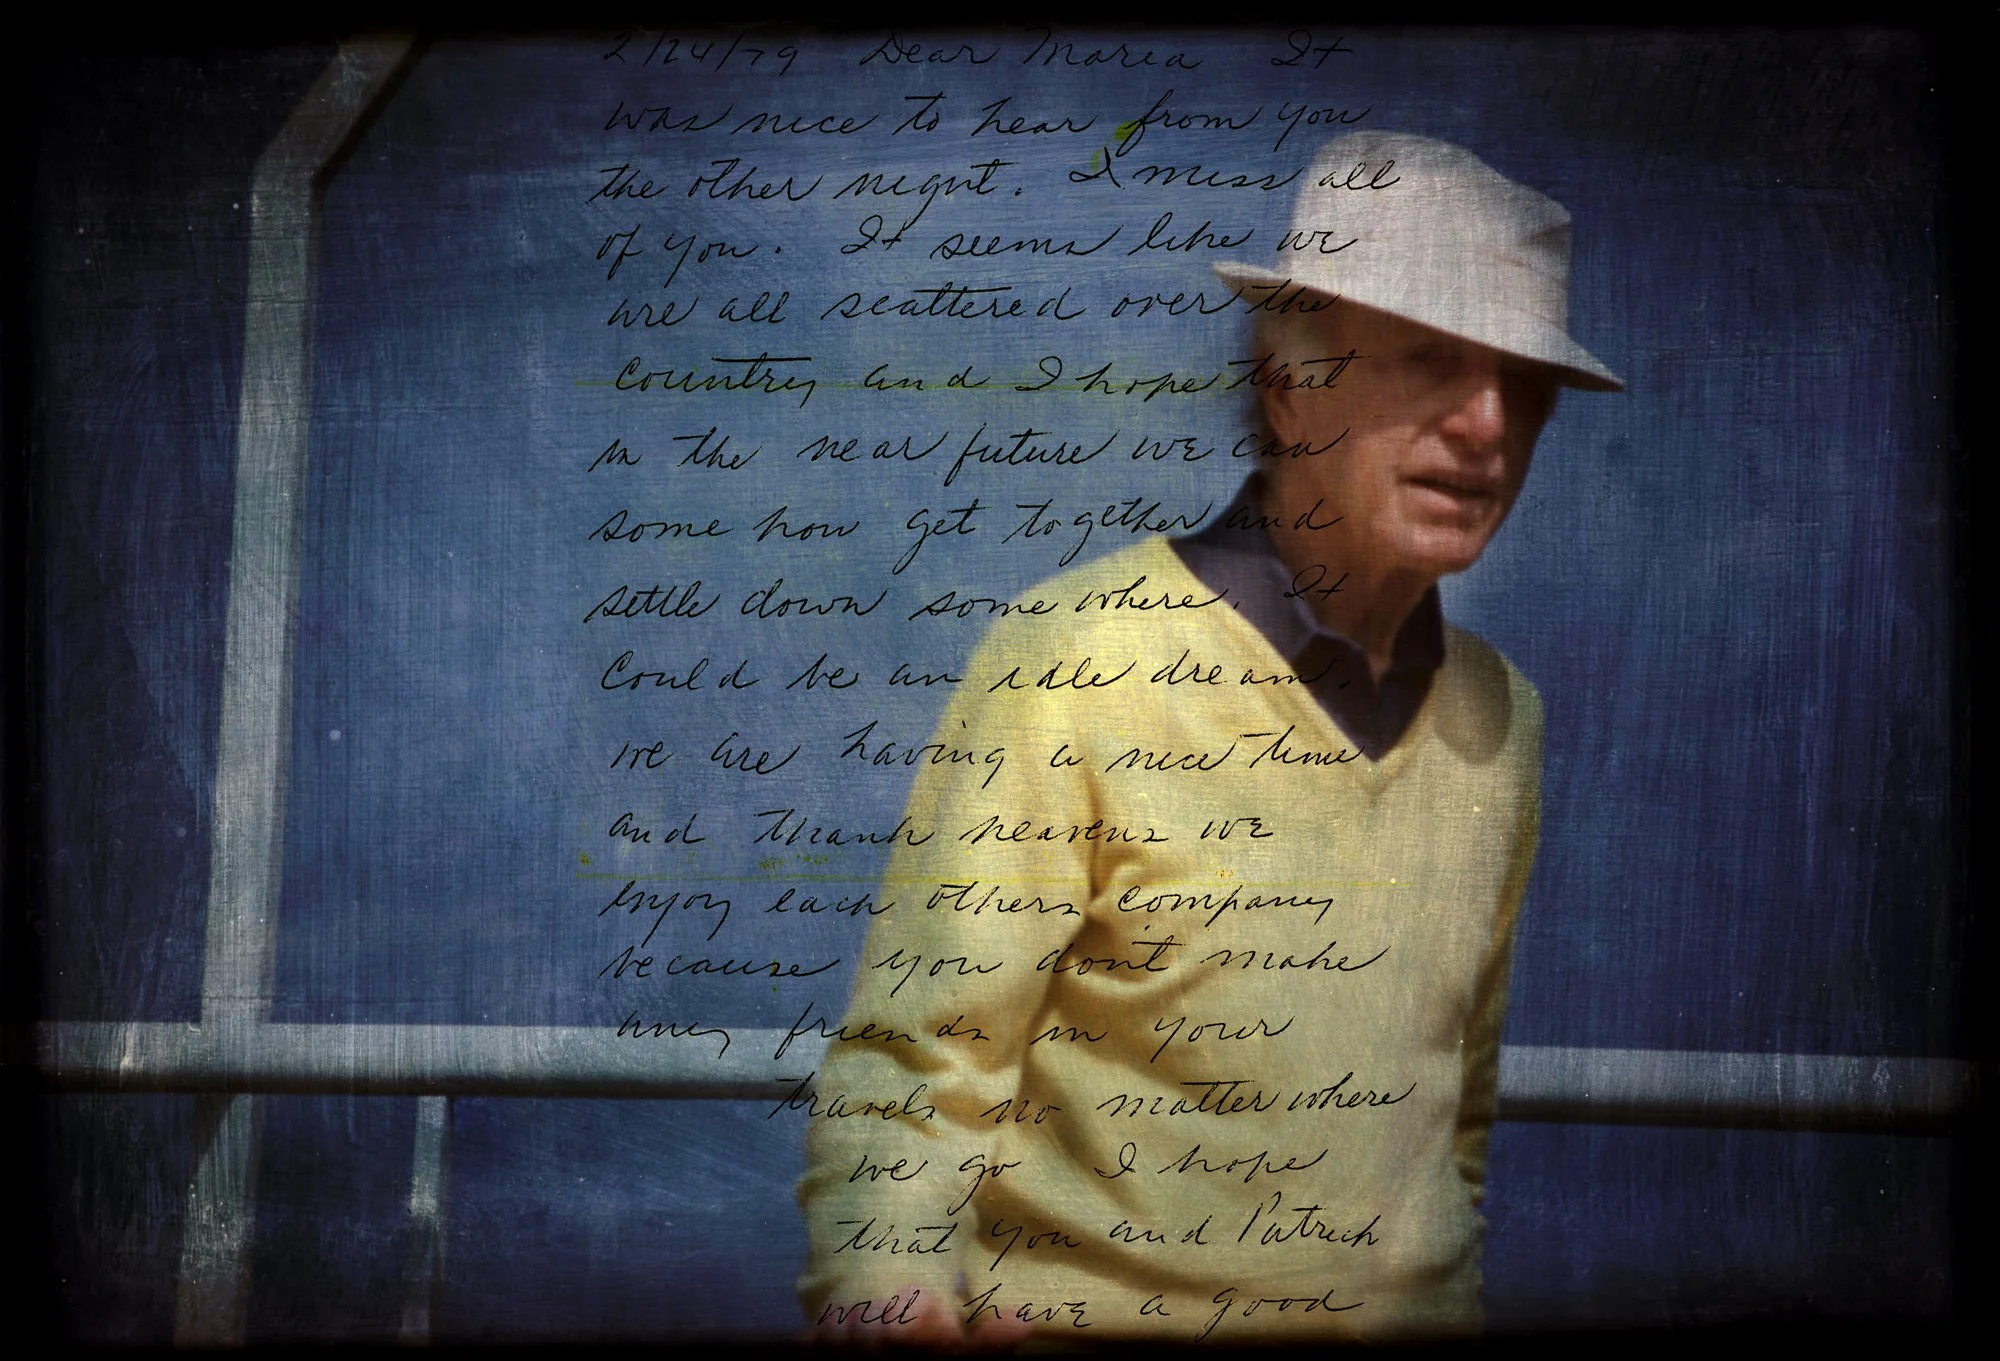 2/24/79 Dear Maria It
was nice to hear from you
the other night. I miss all
of you. It seems like we
are all scattered over the
country and I hope that
in the near future we can
some how get together and
settle down some where. It
could be an idle dream.
we are having a nice time
and thank heavens we
enjoy each others company
because you don't make
any friends in your
travels no matter where
we go I hope
that you and Patrick
will have a good